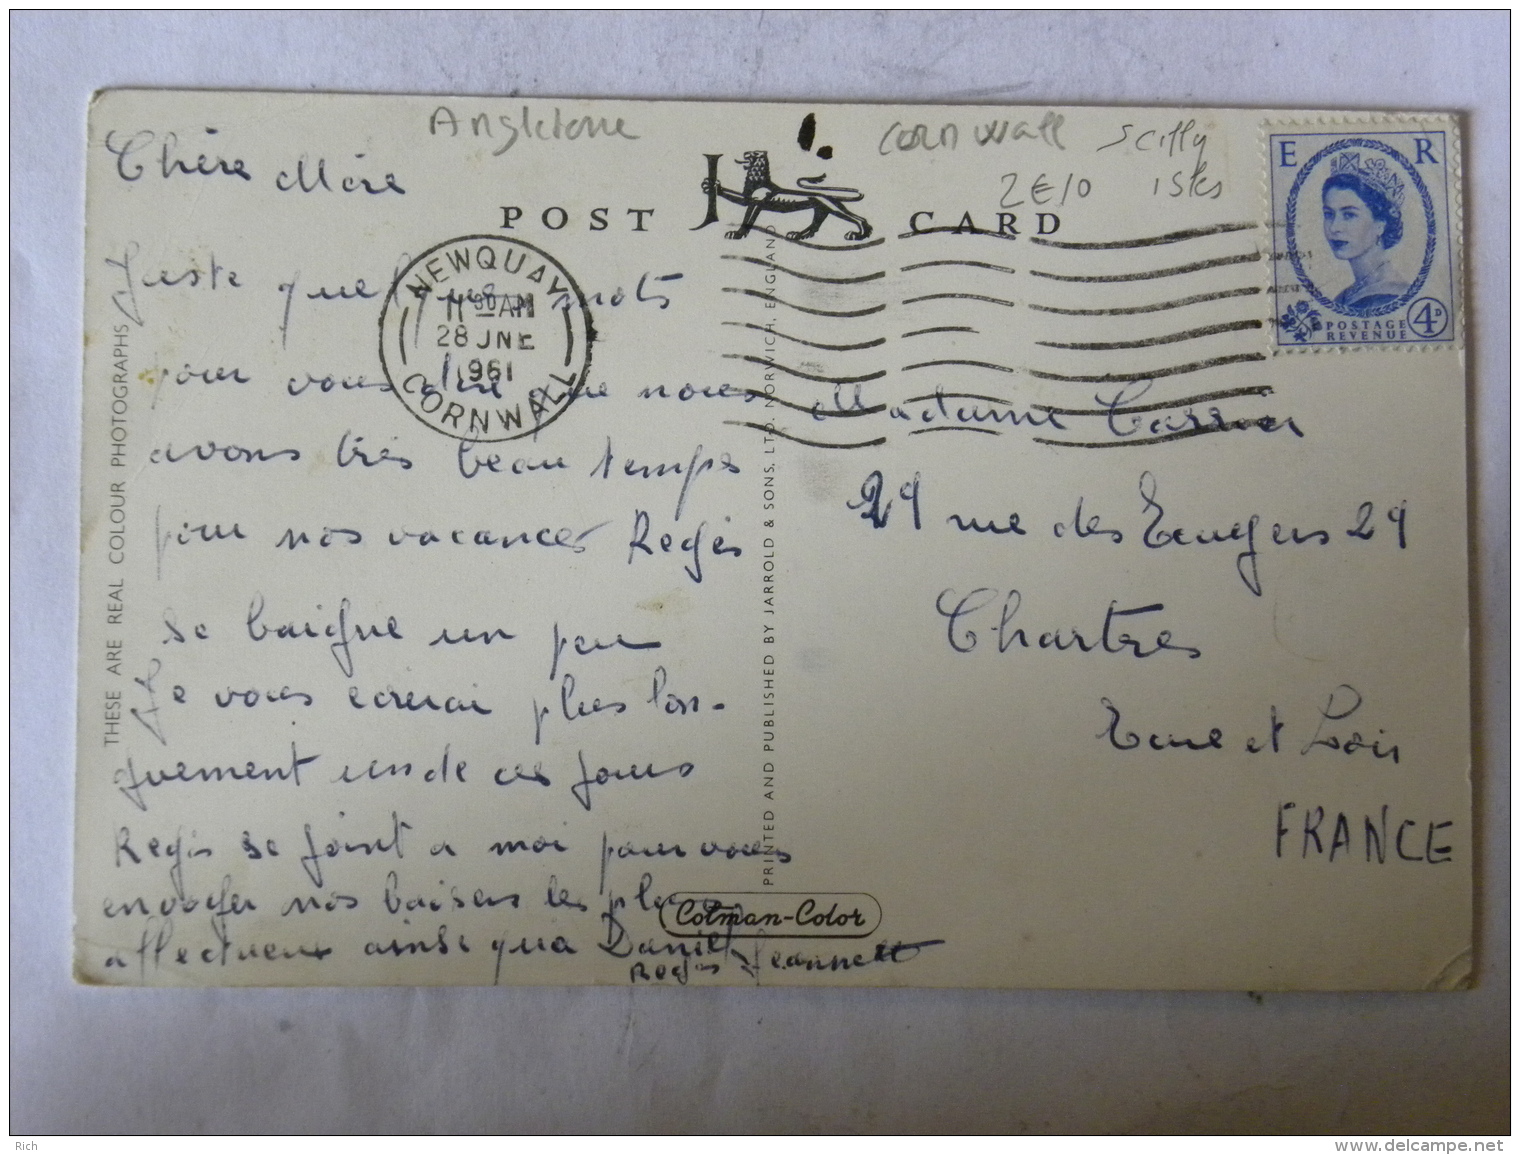 Angleterre
Cornwall
Scilly
2€10 isles
POST CARD
E R
POSTAGE
REVENUE
4D
NEWQUAY
11 30 AM
28 JNE
1961
CORNWALL
Chère Mère
Juste quelques mots
pour vous dire que nous
avons très beau temps
pour nos vacances Regis
se baigne un peu
Je vous ecrirai plus lon-
guement un de ces jours
Regis se joint a moi pour vous
envoyer nos baisers les plus
affectueux ainsi qu'a Daniel
Regis Jeannett
Madame Carrier
29 rue des 29
Chartres
Eure et Loir
FRANCE
THESE ARE REAL COLOUR PHOTOGRAPHS
PRINTED AND PUBLISHED BY JARROLD & SONS, LTD, NORWICH, ENGLAND
Colman-Color
Rich
delcampe.net